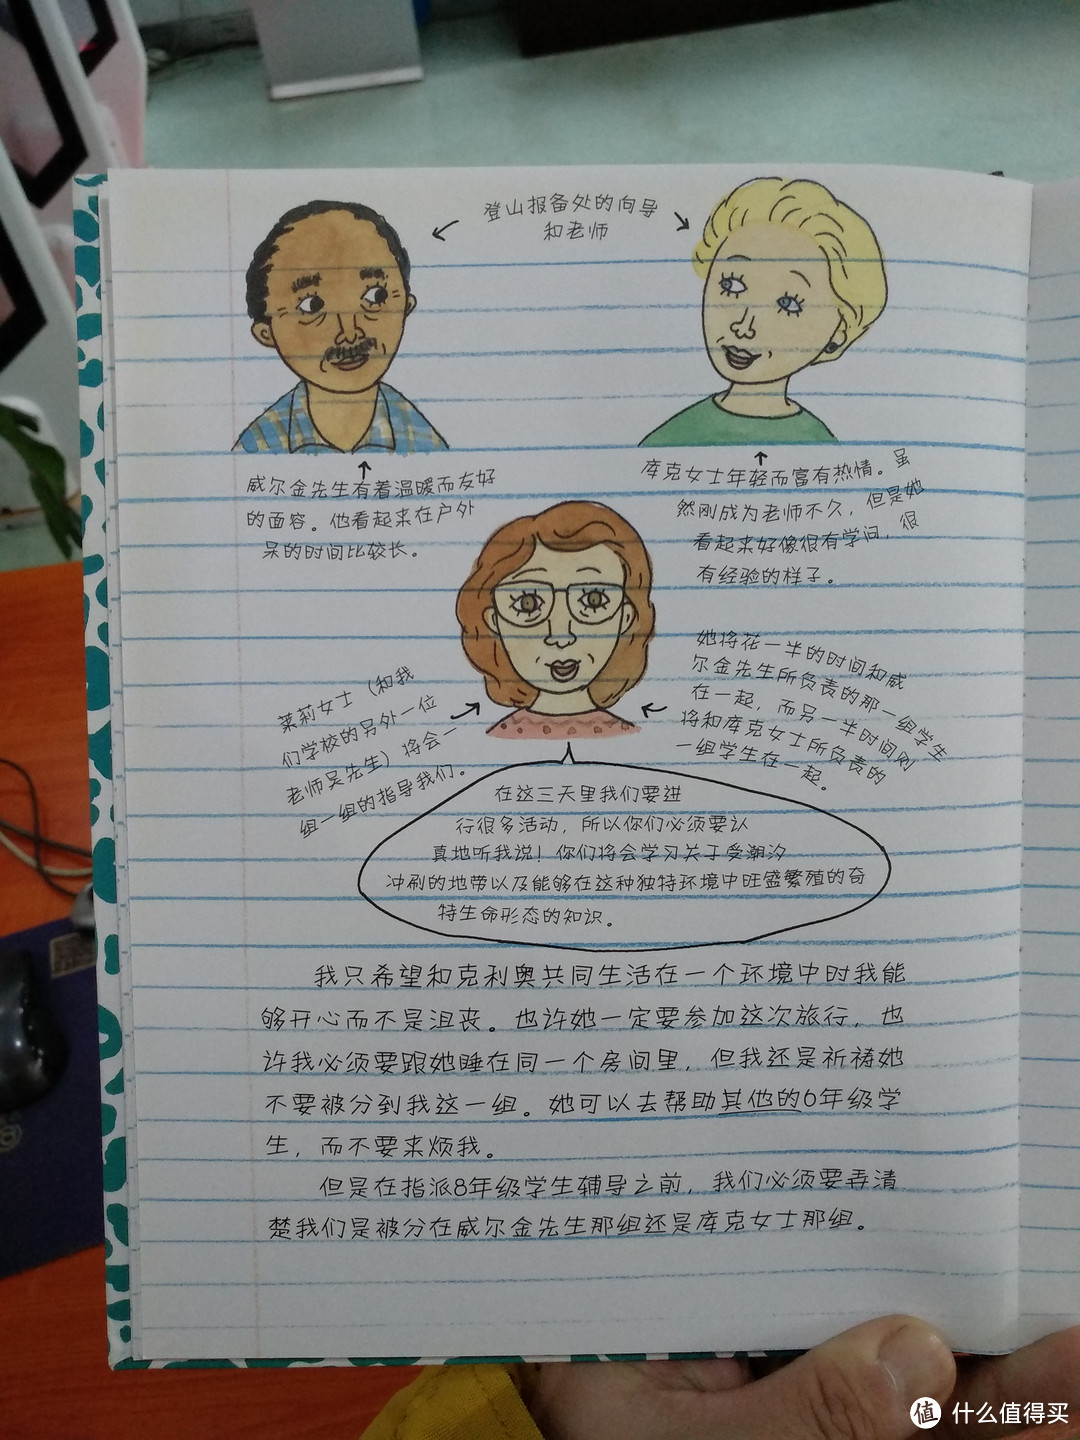 登山报备处的向导
和老师
威尔金先生有着温暖而友好
的面容。他看起来在户外
呆的时间比较长。
库克女士年轻而富有热情。虽
然刚成为老师不久，但是她
看起来好像很有学问，很
有经验的样子。
莱莉女士（和我
们学校的另外一位
老师吴先生）将会一
组一组的指导我们。
她将花一半的时间和威
尔金先生所负责的那一组学生
在一起，而另一半时间则
将和库克女士所负责的
一组学生在一起。
在这三天里我们要进
行很多活动，所以你们必须要认
真地听我说！你们将会学习关于受潮汐
冲刷的地带以及能够在这种独特环境中旺盛繁殖的奇
特生命形态的知识。
我只希望和克利奥共同生活在一个环境中时我能
够开心而不是沮丧。也许她一定要参加这次旅行，也
许我必须要跟她睡在同一个房间里，但我还是祈祷她
不要被分到我这一组。她可以去帮助其他的6年级学
生，而不要来烦我。
但是在指派8年级学生辅导之前，我们必须要弄清
楚我们是被分在威尔金先生那组还是库克女士那组。
值 什么值得买